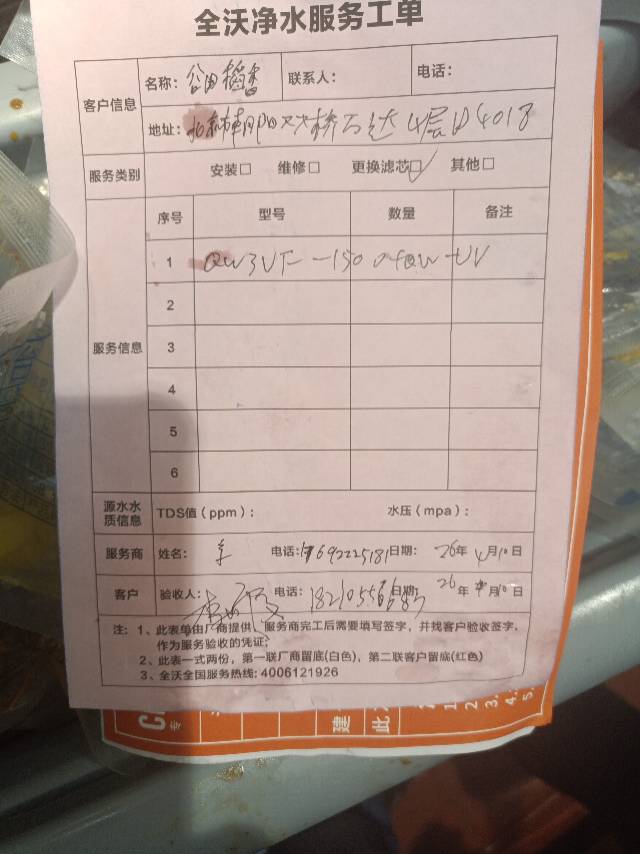 全沃净水服务工单
客户信息
名称: 谷田稻香 联系人: 电话:
地址: 北京市朝阳 大桥 4层 4018
服务类别 安装□ 维修□ 更换滤芯□✓ 其他□
服务信息
序号 型号 数量 备注
1 QW3VF-150
2
3
4
5
6
源水水质信息 TDS值(ppm): 水压(mpa):
服务商 姓名: 电话: 日期: 26年4月10日
客户 验收人: 电话: 日期: 26年 月10日
注: 1、此表单由厂商提供,服务商完工后需要填写签字,并找客户验收签字,
作为服务验收的凭证;
2、此表一式两份,第一联厂商留底(白色),第二联客户留底(红色)
3、全沃全国服务热线: 4006121926
建
此
1.
2.
3.
4.
5.